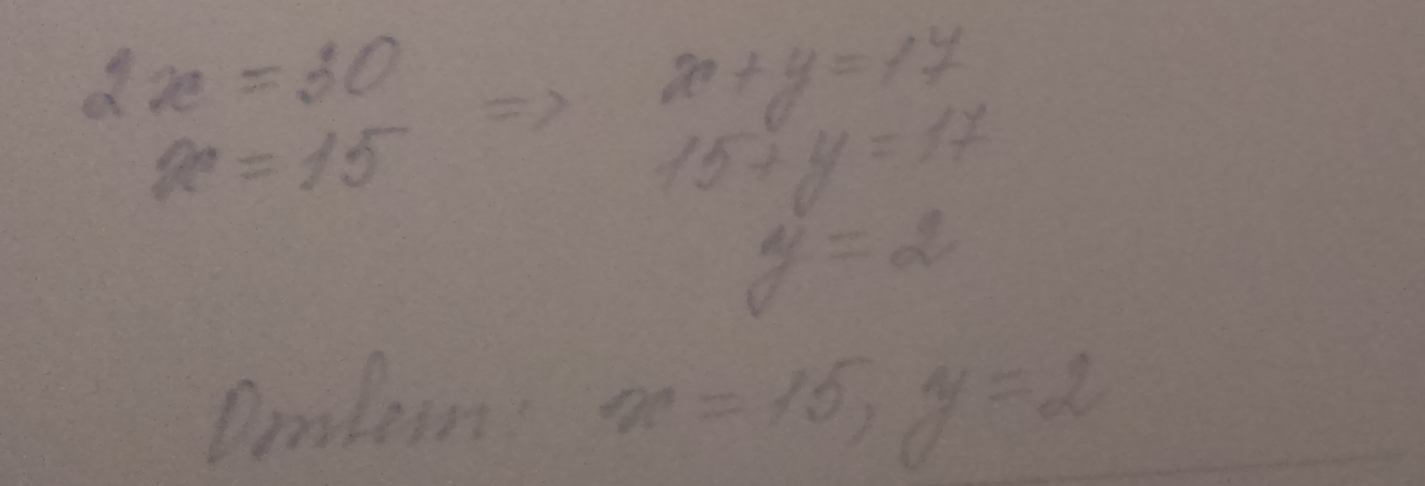 2x = 30 => x + y = 17
x = 15 15 + y = 17
y = 2
Ответ: x = 15, y = 2